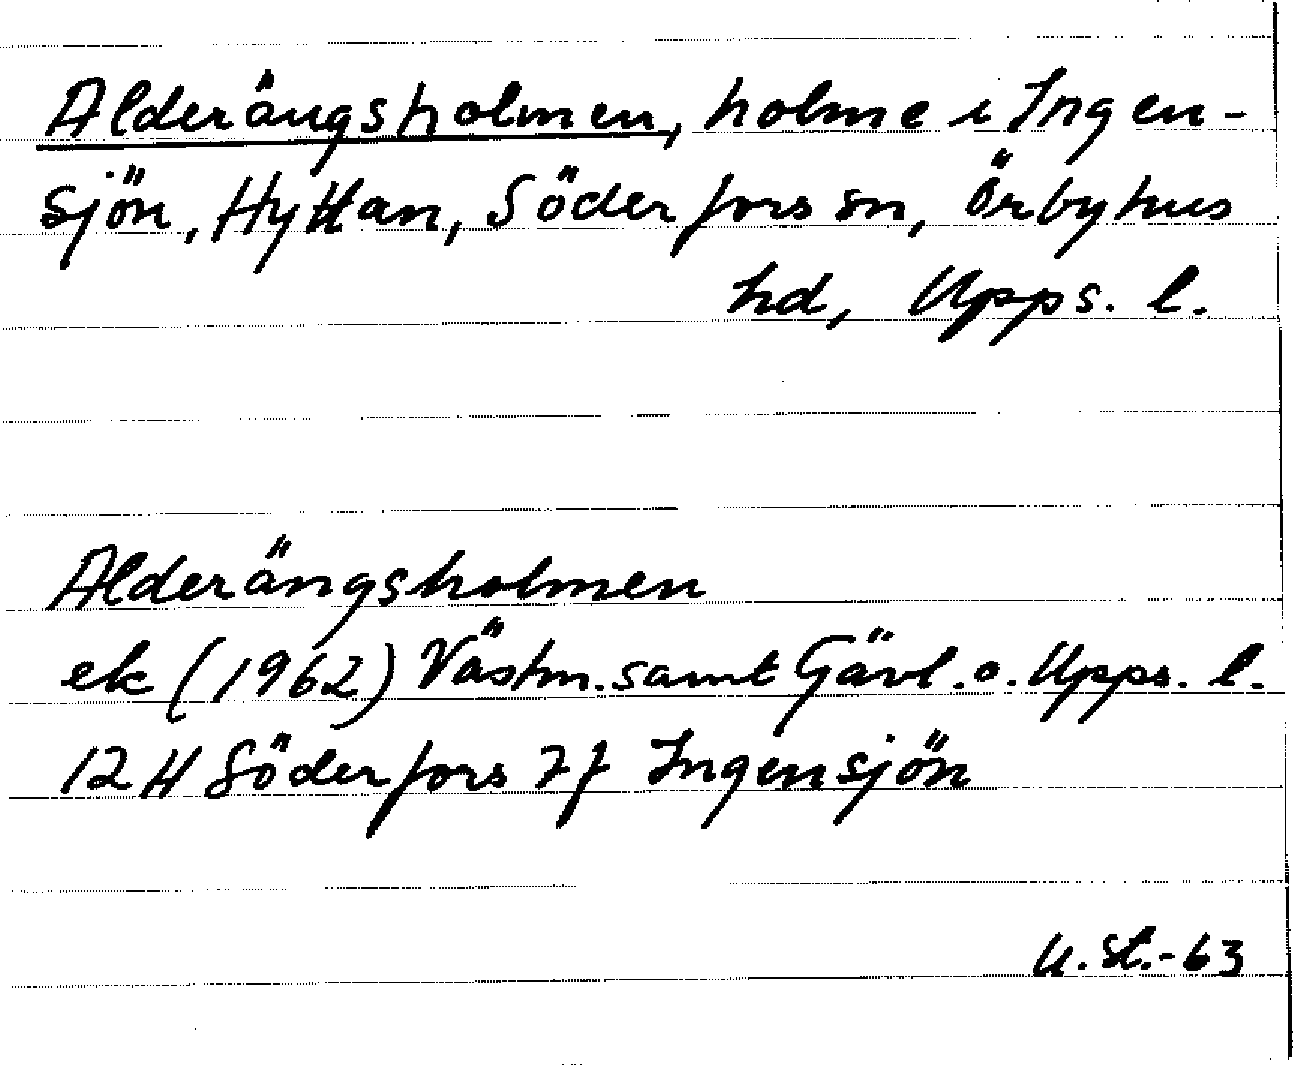 Alderängsholmen, holme i Ingen-
sjön, Hyttan, Söderfors sn, Örbyhus
hd, Upps. l.
Alderängsholmen
ek (1962) Västm. samt Gävl. o. Upps. l.
12 H Söderfors 7f Ingensjön
U. St.-63